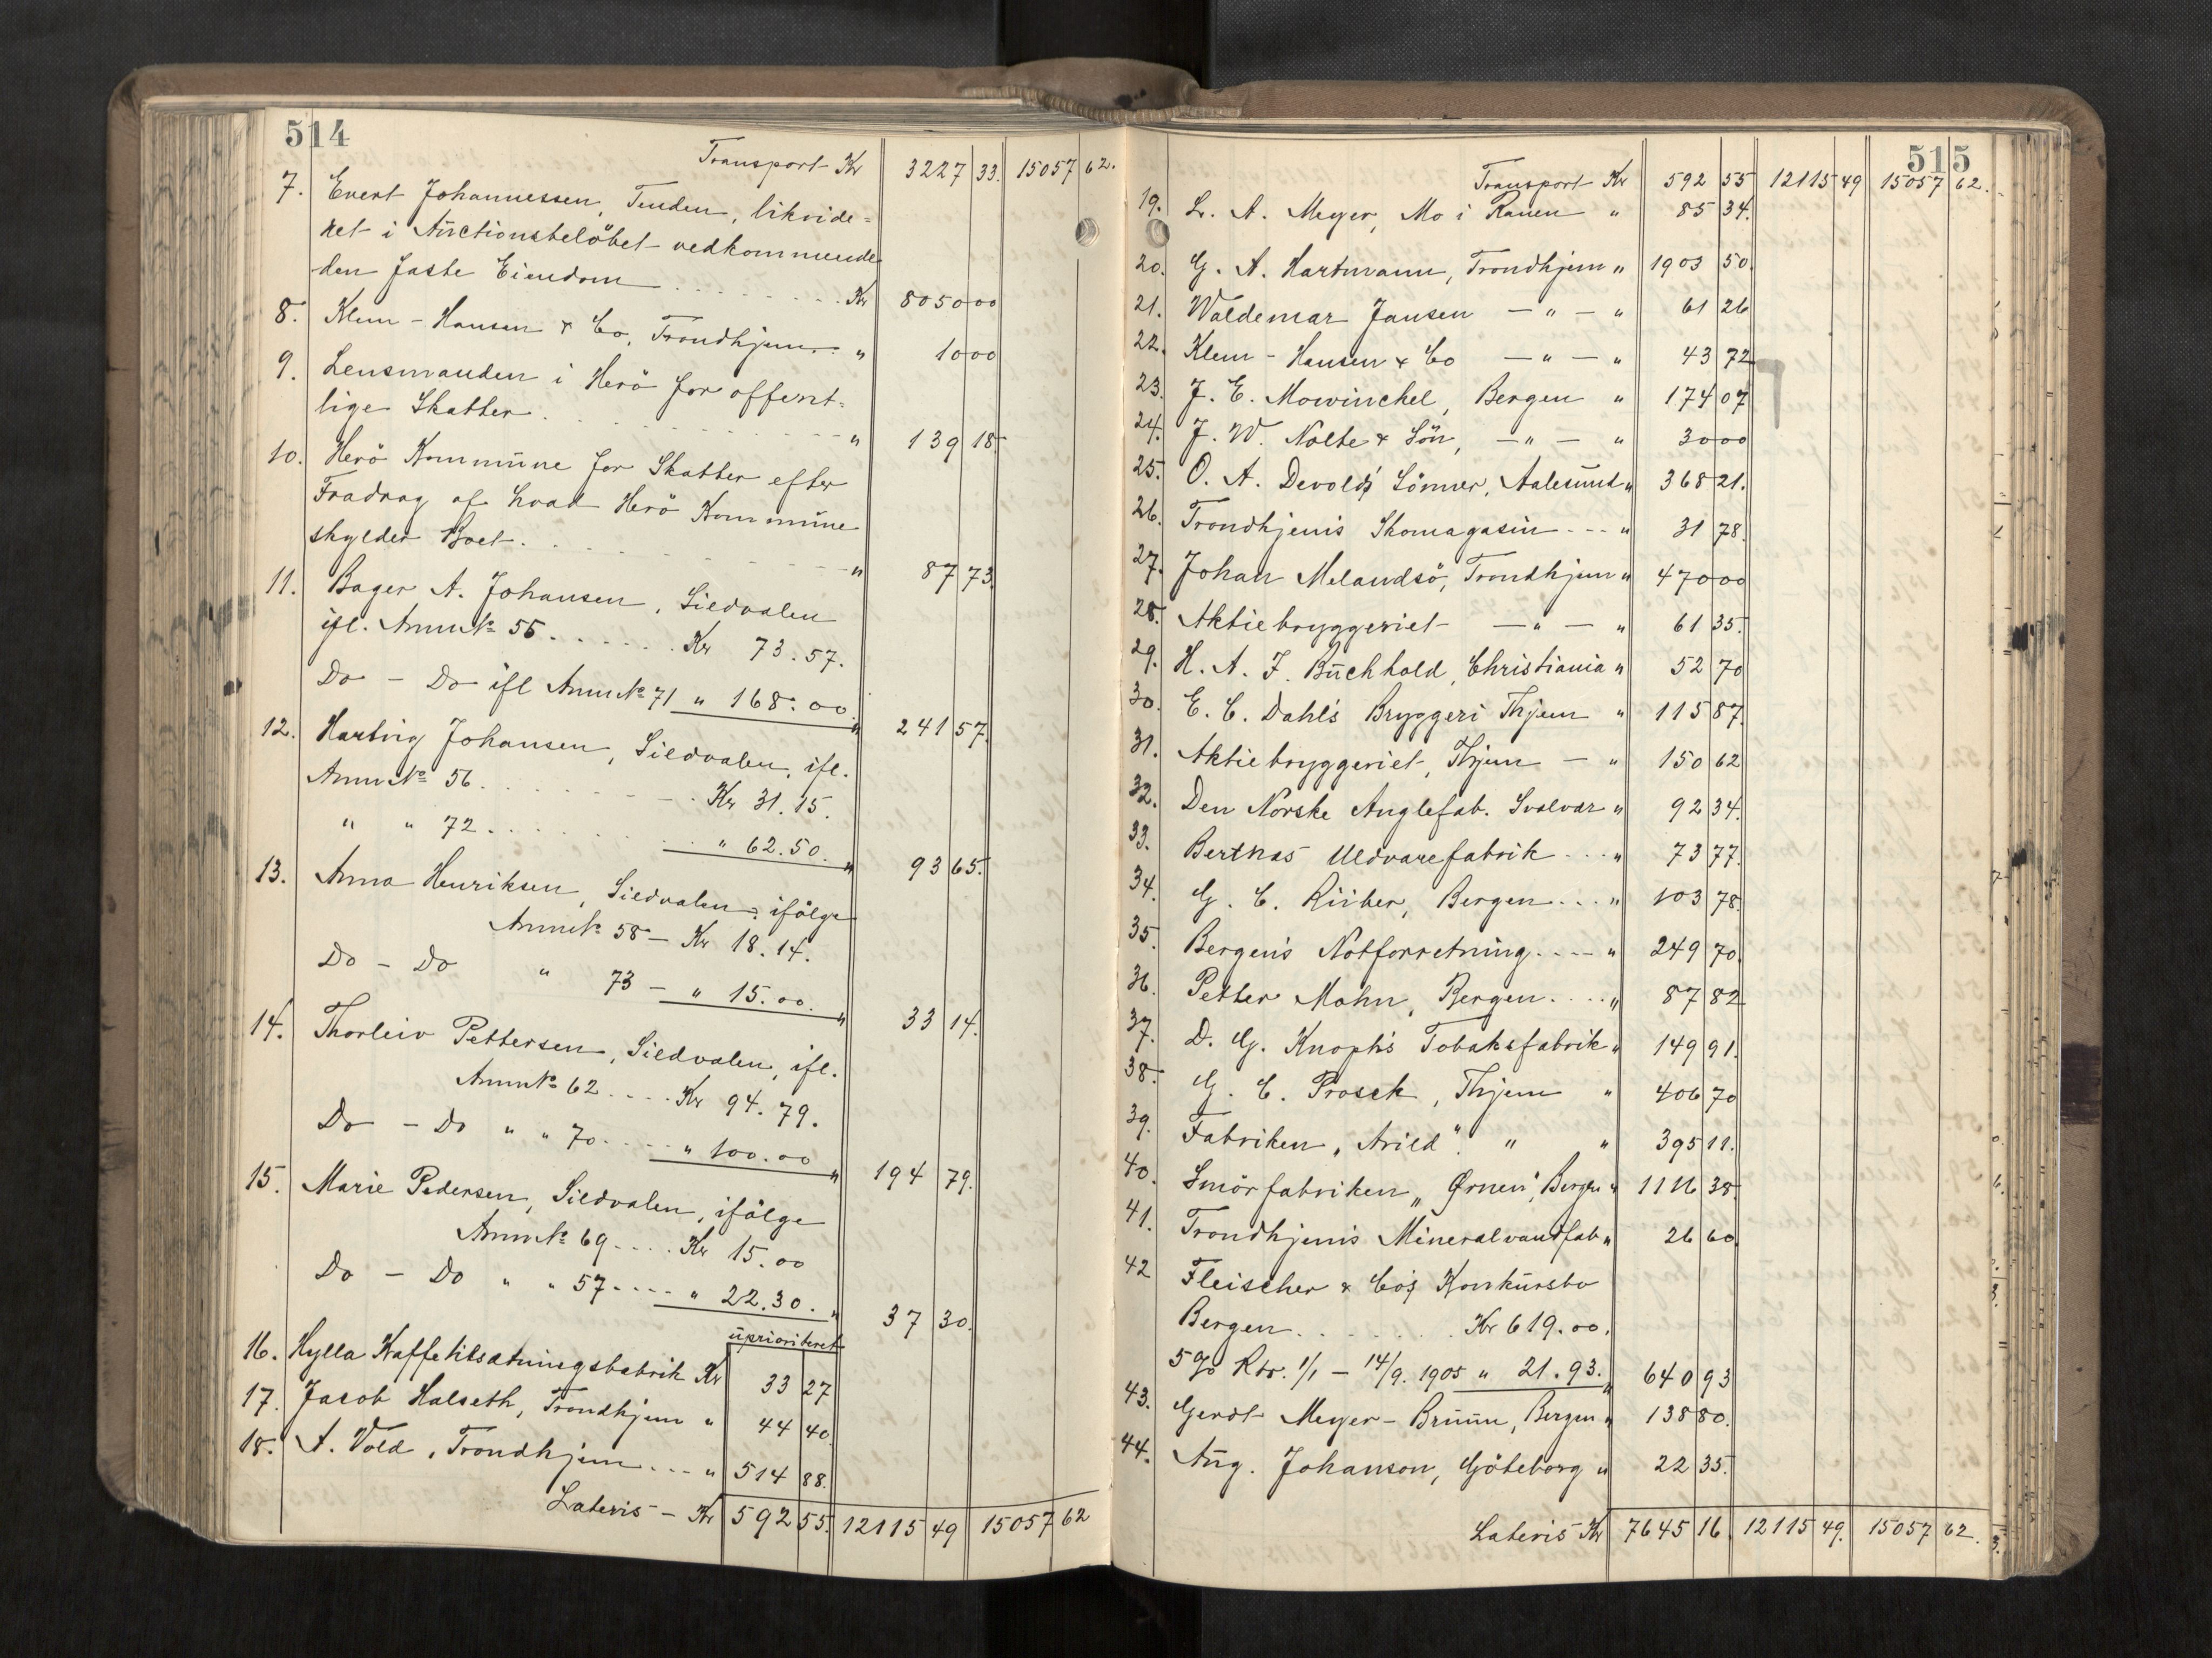 514
Transport Kr 3227 33. 15057 62.
7. Evert Johannessen, Tenden, likvide-
ret i Auctionsbelöbet vedkommende
den faste Eiendom . . . . . . . . . Kr 8050 00
8. Klem-Hansen & Co, Trondhjem . . " 10 00
9. Lensmanden i Herö for offent-
lige Skatter . . . . . . . . . . . " 139 18.
10. Herö Kommune for Skatter efter
Fradrag af hvad Herö Kommune
skylder Boet . . . . . . . . . . " 87 73.
11. Bager A. Johansen, Sildvalen
ifl. Anm № 55 . . . . . . Kr 73.57.
Do - Do ifl Anm № 71 " 168.00. " 241 57.
12. Hartvig Johansen, Sildvalen, ifl.
Anm № 56 . . . . . . . . Kr 31.15.
" " 72 . . . . . . . . " 62.50. " 93 65.
13. Anna Henriksen, Sildvalen, ifölge
Anm № 58 - Kr 18.14.
Do - Do " 73 - " 15.00. " 33 14.
14. Thorleiv Pettersen, Sildvalen, ifl.
Anm № 62 . . . . Kr 94.79.
Do - Do " " 70 . . . . " 100.00 " 194 79.
15. Marie Pedersen, Sildvalen, ifölge
Anm № 69 . . . . Kr 15.00
Do - Do " " 57 . . . . " 22.30. " 37 30.
uprioriteret
16. Hylla Kaffetilsætningsfabrik Kr 33 27
17. Jacob Halseth, Trondhjem " 44 40.
18. A. Vold, Trondhjem . . . " 514 88.
Lateris - Kr 592 55. 12115 49 15057 62
515
Transport Kr 592 55 12115 49 15057 62.
19. L. A. Meyer, Mo i Ranen " 85 34.
20. G. A. Hartmann, Trondhjem " 1903 50.
21. Waldemar Jansen — " — " 61 26
22. Klem-Hansen & Co — " — " 43 72
23. J. E. Mowinckel, Bergen " 174 07
24. J. W. Nolte & Sön, — " — " 30 00
25. O. A. Devold's Sönner, Aalesund " 368 21.
26. Trondhjem's Skomagasin - - - " 31 78.
27. Johan Melandsö, Trondhjem " 470 00
28. Aktiebryggeriet — " — " 61 35.
29. H. A. F. Buchhold, Christiania " 52 70
30. E. C. Dahl's Bryggeri Thjem " 115 87.
31. Aktiebryggeriet, Thjem — " 150 62
32. Den Norske Anglefab. Svolvær " 92 34.
33. Bertnæs Uldvarefabrik . . . " 73 77.
34. G. C. Riiber, Bergen . . . " 103 78.
35. Bergen's Notforretning . . . . " 249 70.
36. Petter Mohn, Bergen . . . . " 87 82
37. D. G. Knoph's Tobaksfabrik " 149 91.
38. G. C. Prosch, Thjem " 406 70
39. Fabriken „Arild". " " 395 11.
40. Smörfabriken „Ørnen", Bergen " 1116 38.
41. Trondhjem's Mineralvandfab " 26 60.
42 Fleischer & Co's Konkursbo
Bergen . . . . . . . Kr 619.00.
5 % Rtr. 1/1 - 14/9. 1905 " 21.93. " 640 93
43. Gerdt Meyer-Bruun, Bergen " 138 80.
44. Aug. Johanson, Göteborg " 22 35.
Lateris Kr 7645 16. 12115 49. 15057 62.